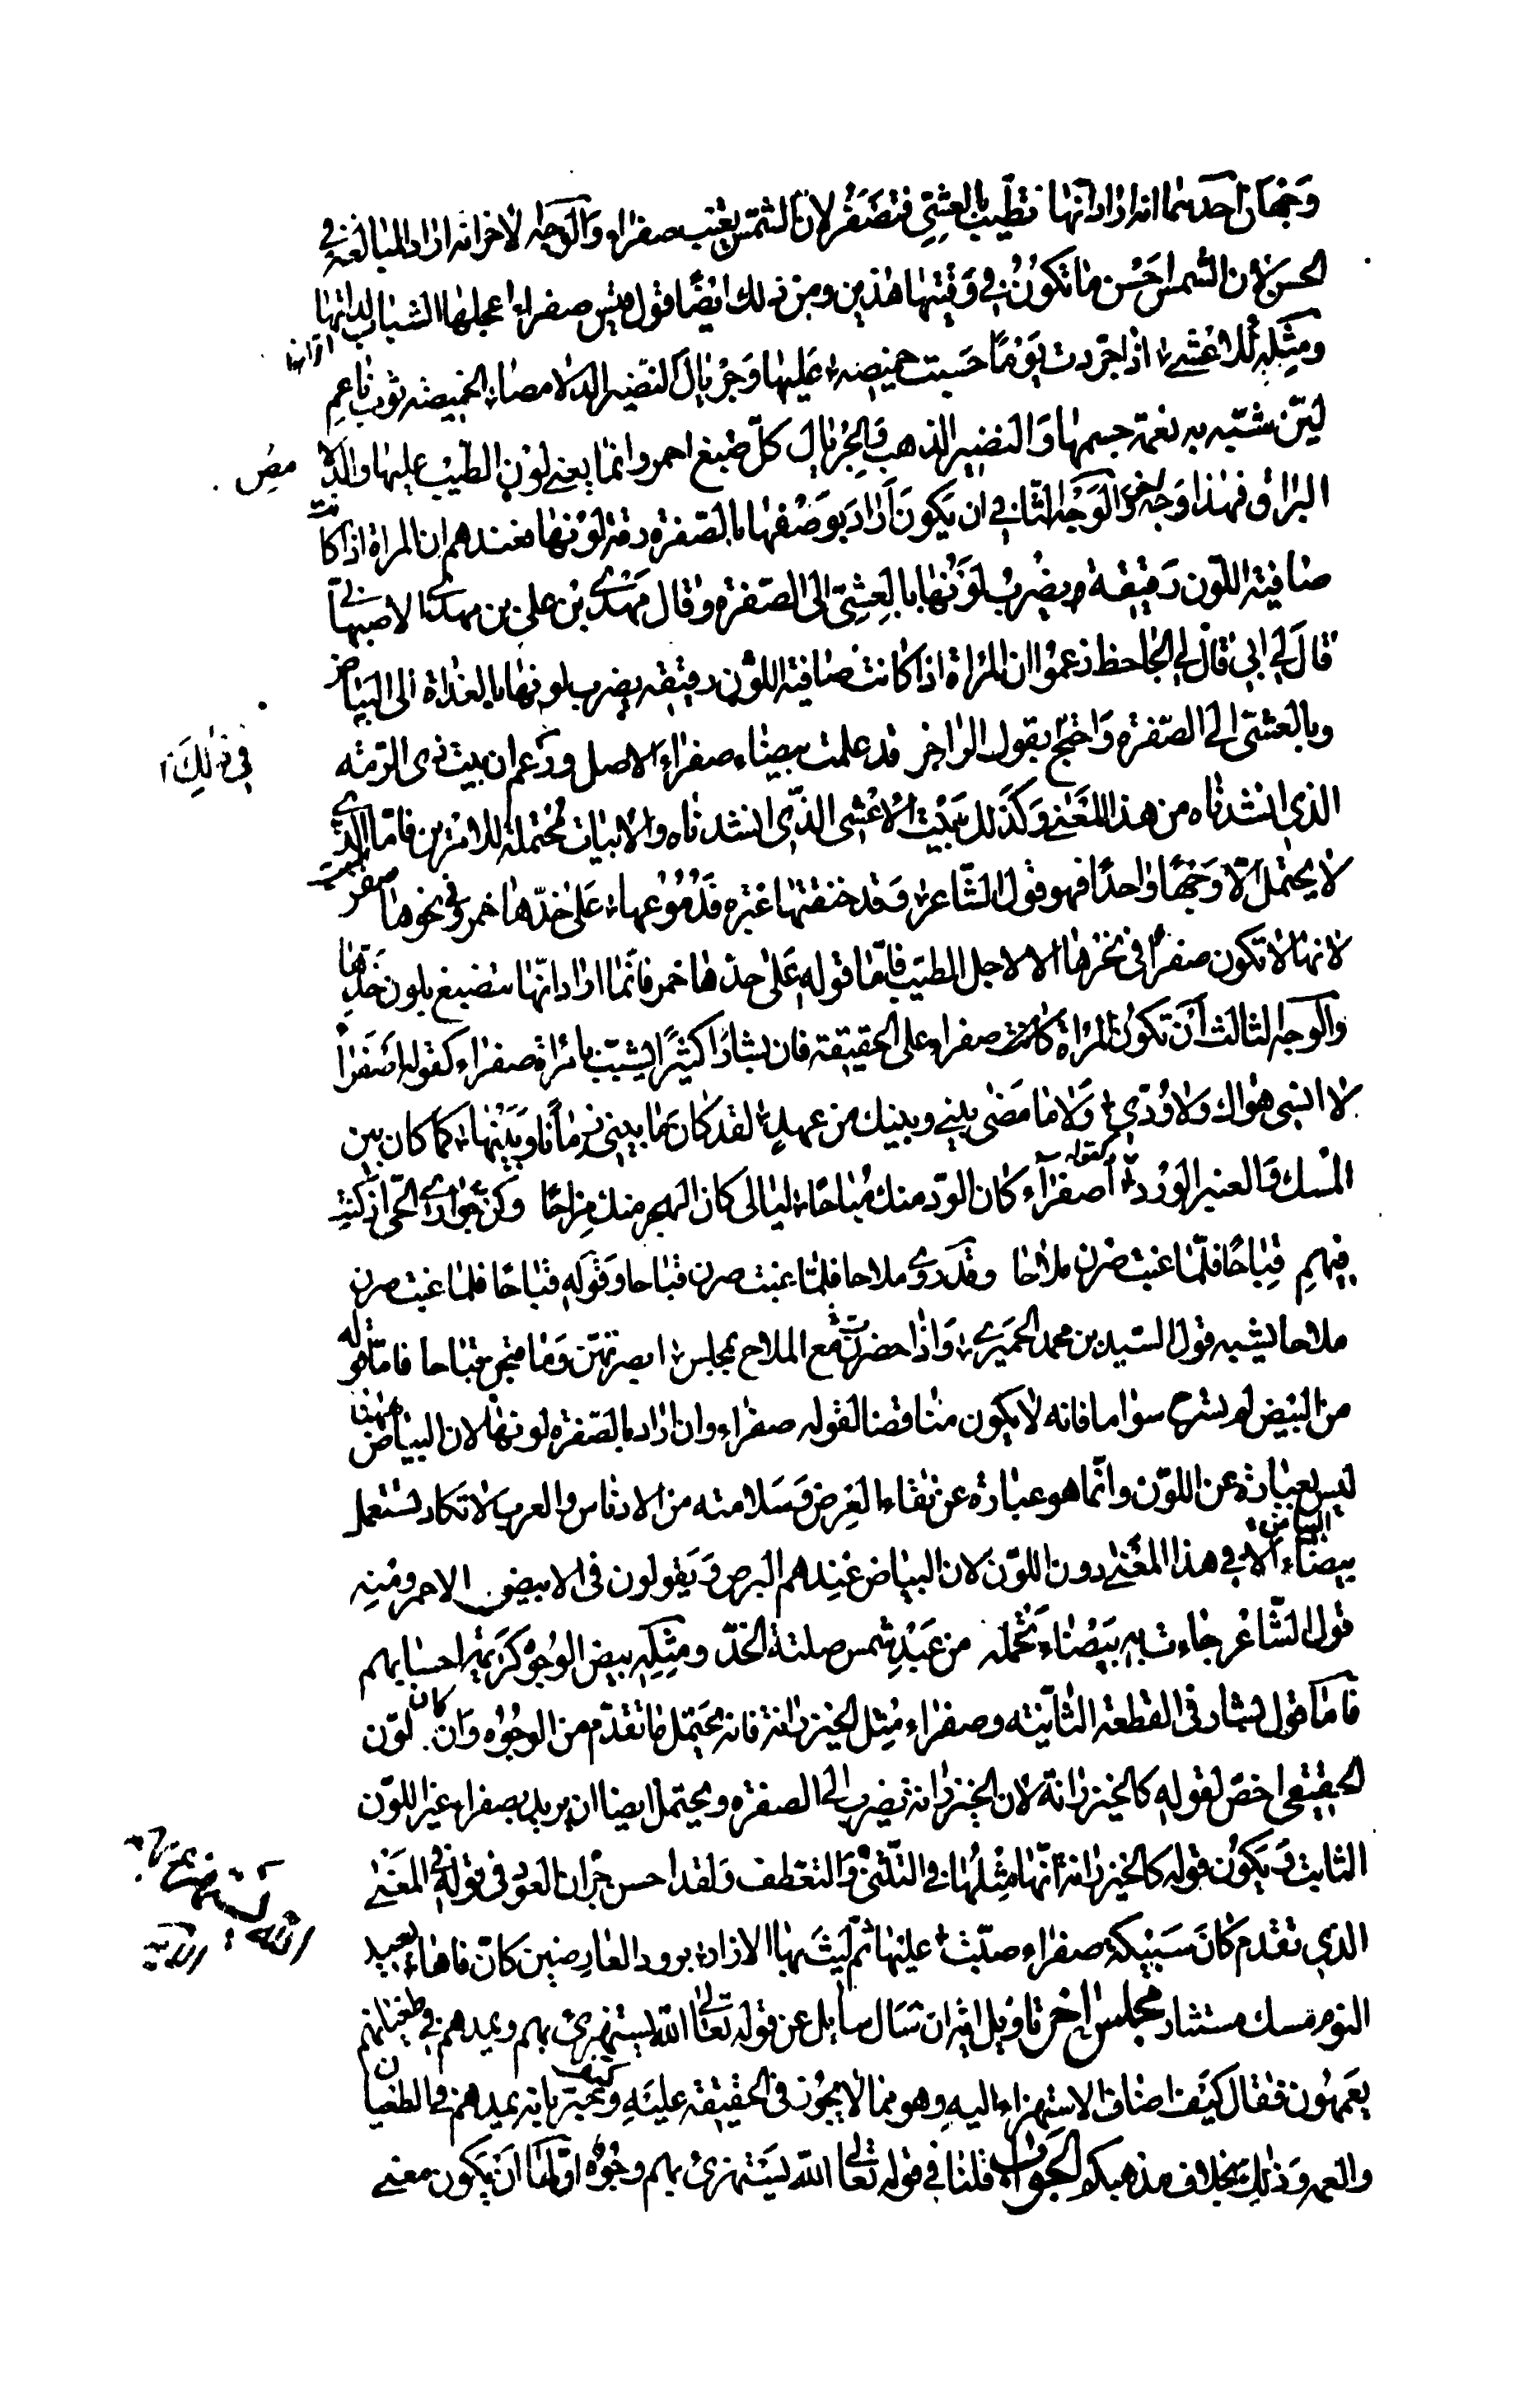 وَجهان احدهما انه اراد انها تطيب بالعشى فتصفر لان الشمس تغيب صفراء والوجه الاخر انه اراد المبالغة فى
الحسن لان الشمس احسن ما تكون فى وقتيها هذين ومن ذلك ايضًا قول قيس صفراء اعجلها الشباب لداتها
اترابها
ومثله للاعشى اذا جردت يومًا حسبت خميصة عليها وجريال النضير الدلامصا الخميصة ثوب ناعم
لين شبه به نعمة جسمها والنضير الذهب والجريال كل صبغ احمر وانما يعنى لون الطيب عليها والدلا
مص
البراق فهذا وجه والوجه الثانى ان يكون اراد بوصفها بالصفرة رقة لونها فعندهم ان المراة اذا كانت
صافية اللون رقيقة يضرب لونها بالعشى الى الصفرة وقال مهدى بن على بن مهدى الاصبهانى
قال لى ابى قال لى الجاحظ زعموا ان المراة اذا كانت صافية اللون رقيقة يضرب لونها بالغداة الى البياض
وبالعشى الى الصفرة واحتج بقول الراجز قد علمت بيضاء صفراء الاصل وزعم ان بيت ذى الرمة
فى ذلك
الذى انشدناه من هذا المعنى وكذلك بيت الاعشى الذى انشدناه والابيات محتملة للامرين فاما الذى
لا يحتمل الا وجهًا واحدًا فهو قول الشاعر وقد خنقتها عبرة فدموعها على خدها حمر وفى نحرها صفر
لانها لا تكون صفرًا فى نحرها الا لاجل الطيب فاما قوله على خدها حمر فانما اراد انها تنصبغ بلون خدها
والوجه الثالث ان تكون المراة كانت صفراء على الحقيقة فان بشارًا كثيرًا يشبب بامراة صفراء كقوله اصفراء
لا انسى هواك ولا ودى ولا ما مضى بينى وبينك من عهد لقد كان ما بينى زمانًا وبينها كما كان بين
المسك والعنبر الورد وكقوله اصفراء كان الود منك مباحًا ليالى كان الهجر منك مزاحًا وكن جوارى الحى اذ كنت
فيهم قباحًا فلما غبت صرن ملاحا وقد روى ملاحا فلما غبت صرن قباحا وقوله قباحًا فلما غبت صرن
ملاحا يشبه قول السيد بن محمد الحميرى واذا حضرن مع الملاح بمجلس ابصرتهن وما قبحن قباحا فاما قوله
من البيض لم تسرح سواما فانه لا يكون مناقضا لقوله صفراء وان اراد بالصفرة لونها لان البياض ههنا
ليس بعبارة عن اللون وانما هو عبارة عن نقاء العرض وسلامته من الادناس والعرب لا تكاد تستعمل
البياض
بيضاء الا فى هذا المعنى دون اللون لان البياض عندهم البرص ويقولون فى الابيض الاحمر ومنه
قول الشاعر جاءت به بيضاء تحمله من عبد شمس صلتة الخد ومثله بيض الوجوه كريمة احسابهم
فاما قول بشار فى القطعة الثانية وصفراء مثل الخيزرانة فانه يحتمل ما تقدم من الوجوه وان كان لون
الحقيقى اخص لقوله كالخيزرانة لان الخيزرانة تضرب الى الصفرة ويحتمل ايضا ان يريد بصفراء غير اللون
الثابت ويكون قوله كالخيزرانة انها مثلها فى التثنى والتعطف ولقد احسن جران العود فى قوله فى المعنى
الذى تقدم كان سبيكة صفراء صبت عليها ثم ليث بها الازار برود العارضين كان فاها بعيد
النوم مسك مستثار مجلس اخر تاويل اية ان سال سايل عن قوله تعالى الله يستهزئ بهم ويمدهم فى طغيانهم
يعمهون فقال كيف اضاف الاستهزاء اليه وهو مما لا يجوز فى الحقيقة عليه وكيف خبر بانه يمدهم فى الطغيان
والعمه وذلك بخلاف مذهبكم الجواب قلنا فى قوله تعالى الله يستهزئ بهم وجوه اولها ان يكون معنى